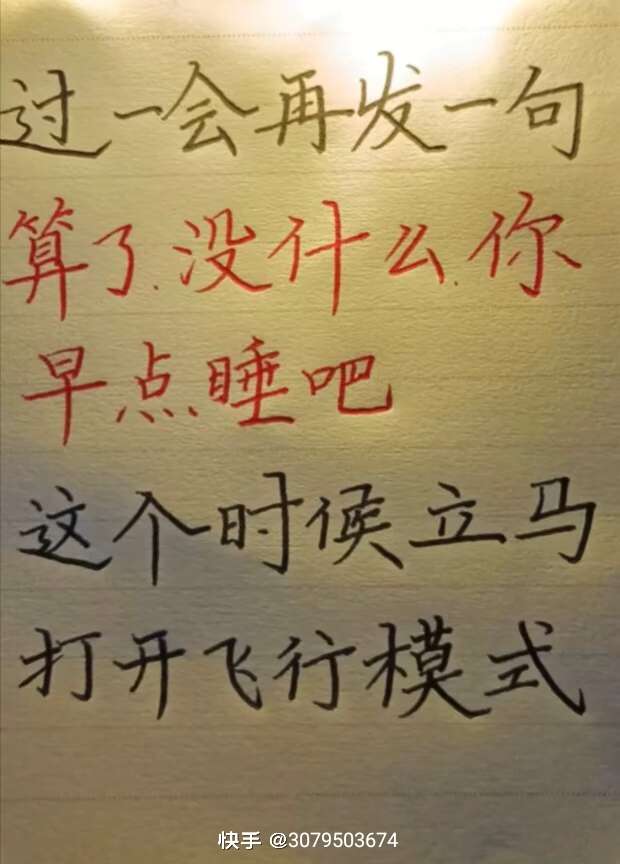 过一会再发一句
算了.没什么.你
早点睡吧
这个时候立马
打开飞行模式
快手 @3079503674